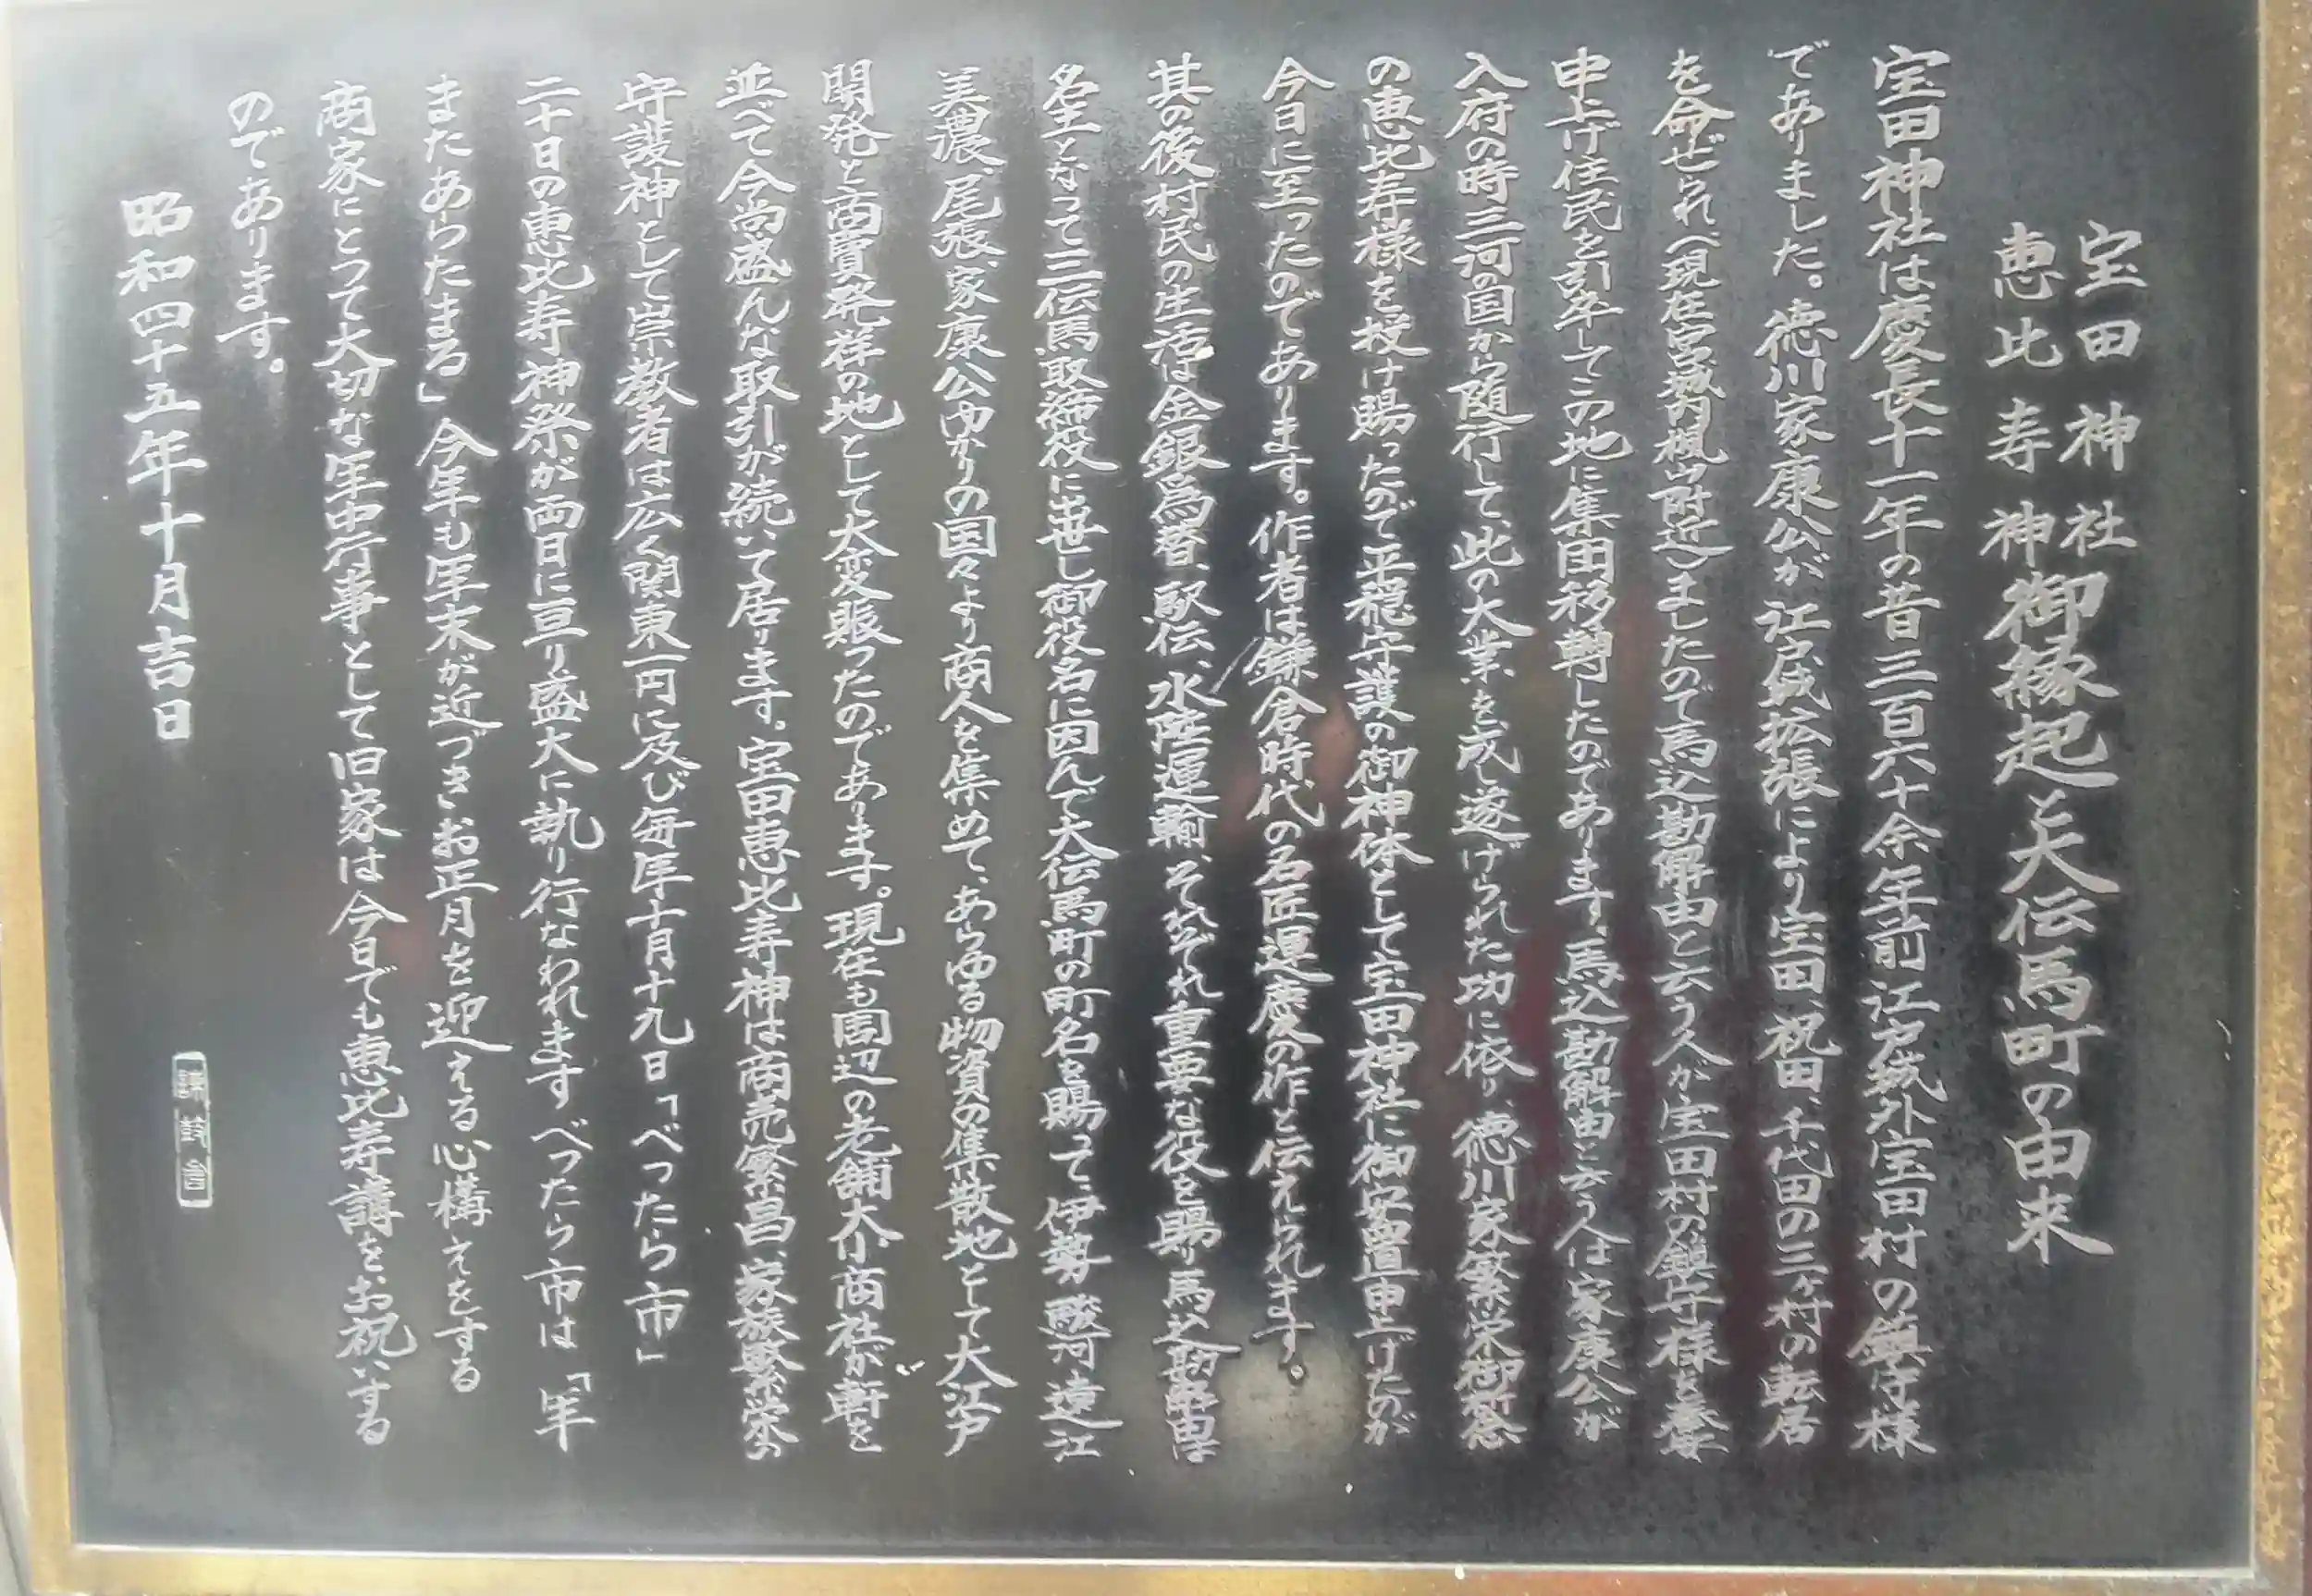 宝田神社
恵比寿神御縁起と大伝馬町の由来
宝田神社は慶長十一年の昔三百六十余年前江戸城外宝田村の鎮守様
でありました。徳川家康公が江戸城拡張により宝田、祝田、千代田の三ヶ村の転居
を命ぜられ（現在宮城内楓山附近）ましたので馬込勘解由と云う人が宝田村の鎮守様を奉安
申上げ住民を引卒してこの地に集団移轉したのであります、馬込勘解由と云う人は家康公が
入府の時三河の国から随行して、此の大業を成し遂げられた功に依り、徳川家繁栄御祈念
の恵比寿様を授け賜ったので平穏守護の御神体として宝田神社に御安置申上げたのが
今日に至ったのであります。作者は鎌倉時代の名匠運慶の作と伝えられます。
其の後村民の生活は金銀為替、駅伝、水陸運輸、それぞれ重要な役を賜り馬込勘解由は
名主となって三伝馬取締役に出世し御役名に因んで大伝馬町の町名を賜って、伊勢、駿河、遠江
美濃、尾張、家康公ゆかりの国々より商人を集めて、あらゆる物資の集散地として大江戸
開発と商賣発祥の地として大変賑ったのであります。現在も周辺の老舗大小商社が軒を
並べて今尚盛んな取引が続いて居ります。宝田恵比寿神は商売繁昌、家族繁栄の
守護神として崇敬者は広く関東一円に及び毎年十月十九日「べったら市」
二十日の恵比寿神祭が両日に亘り盛大に執り行なわれますべったら市は「年
またあらたまる」今年も年末が近づきお正月を迎える心構えをする
商家にとって大切な年中行事として旧家は今日でも恵比寿講を、お祝いする
のであります。
昭和四十五年十月吉日